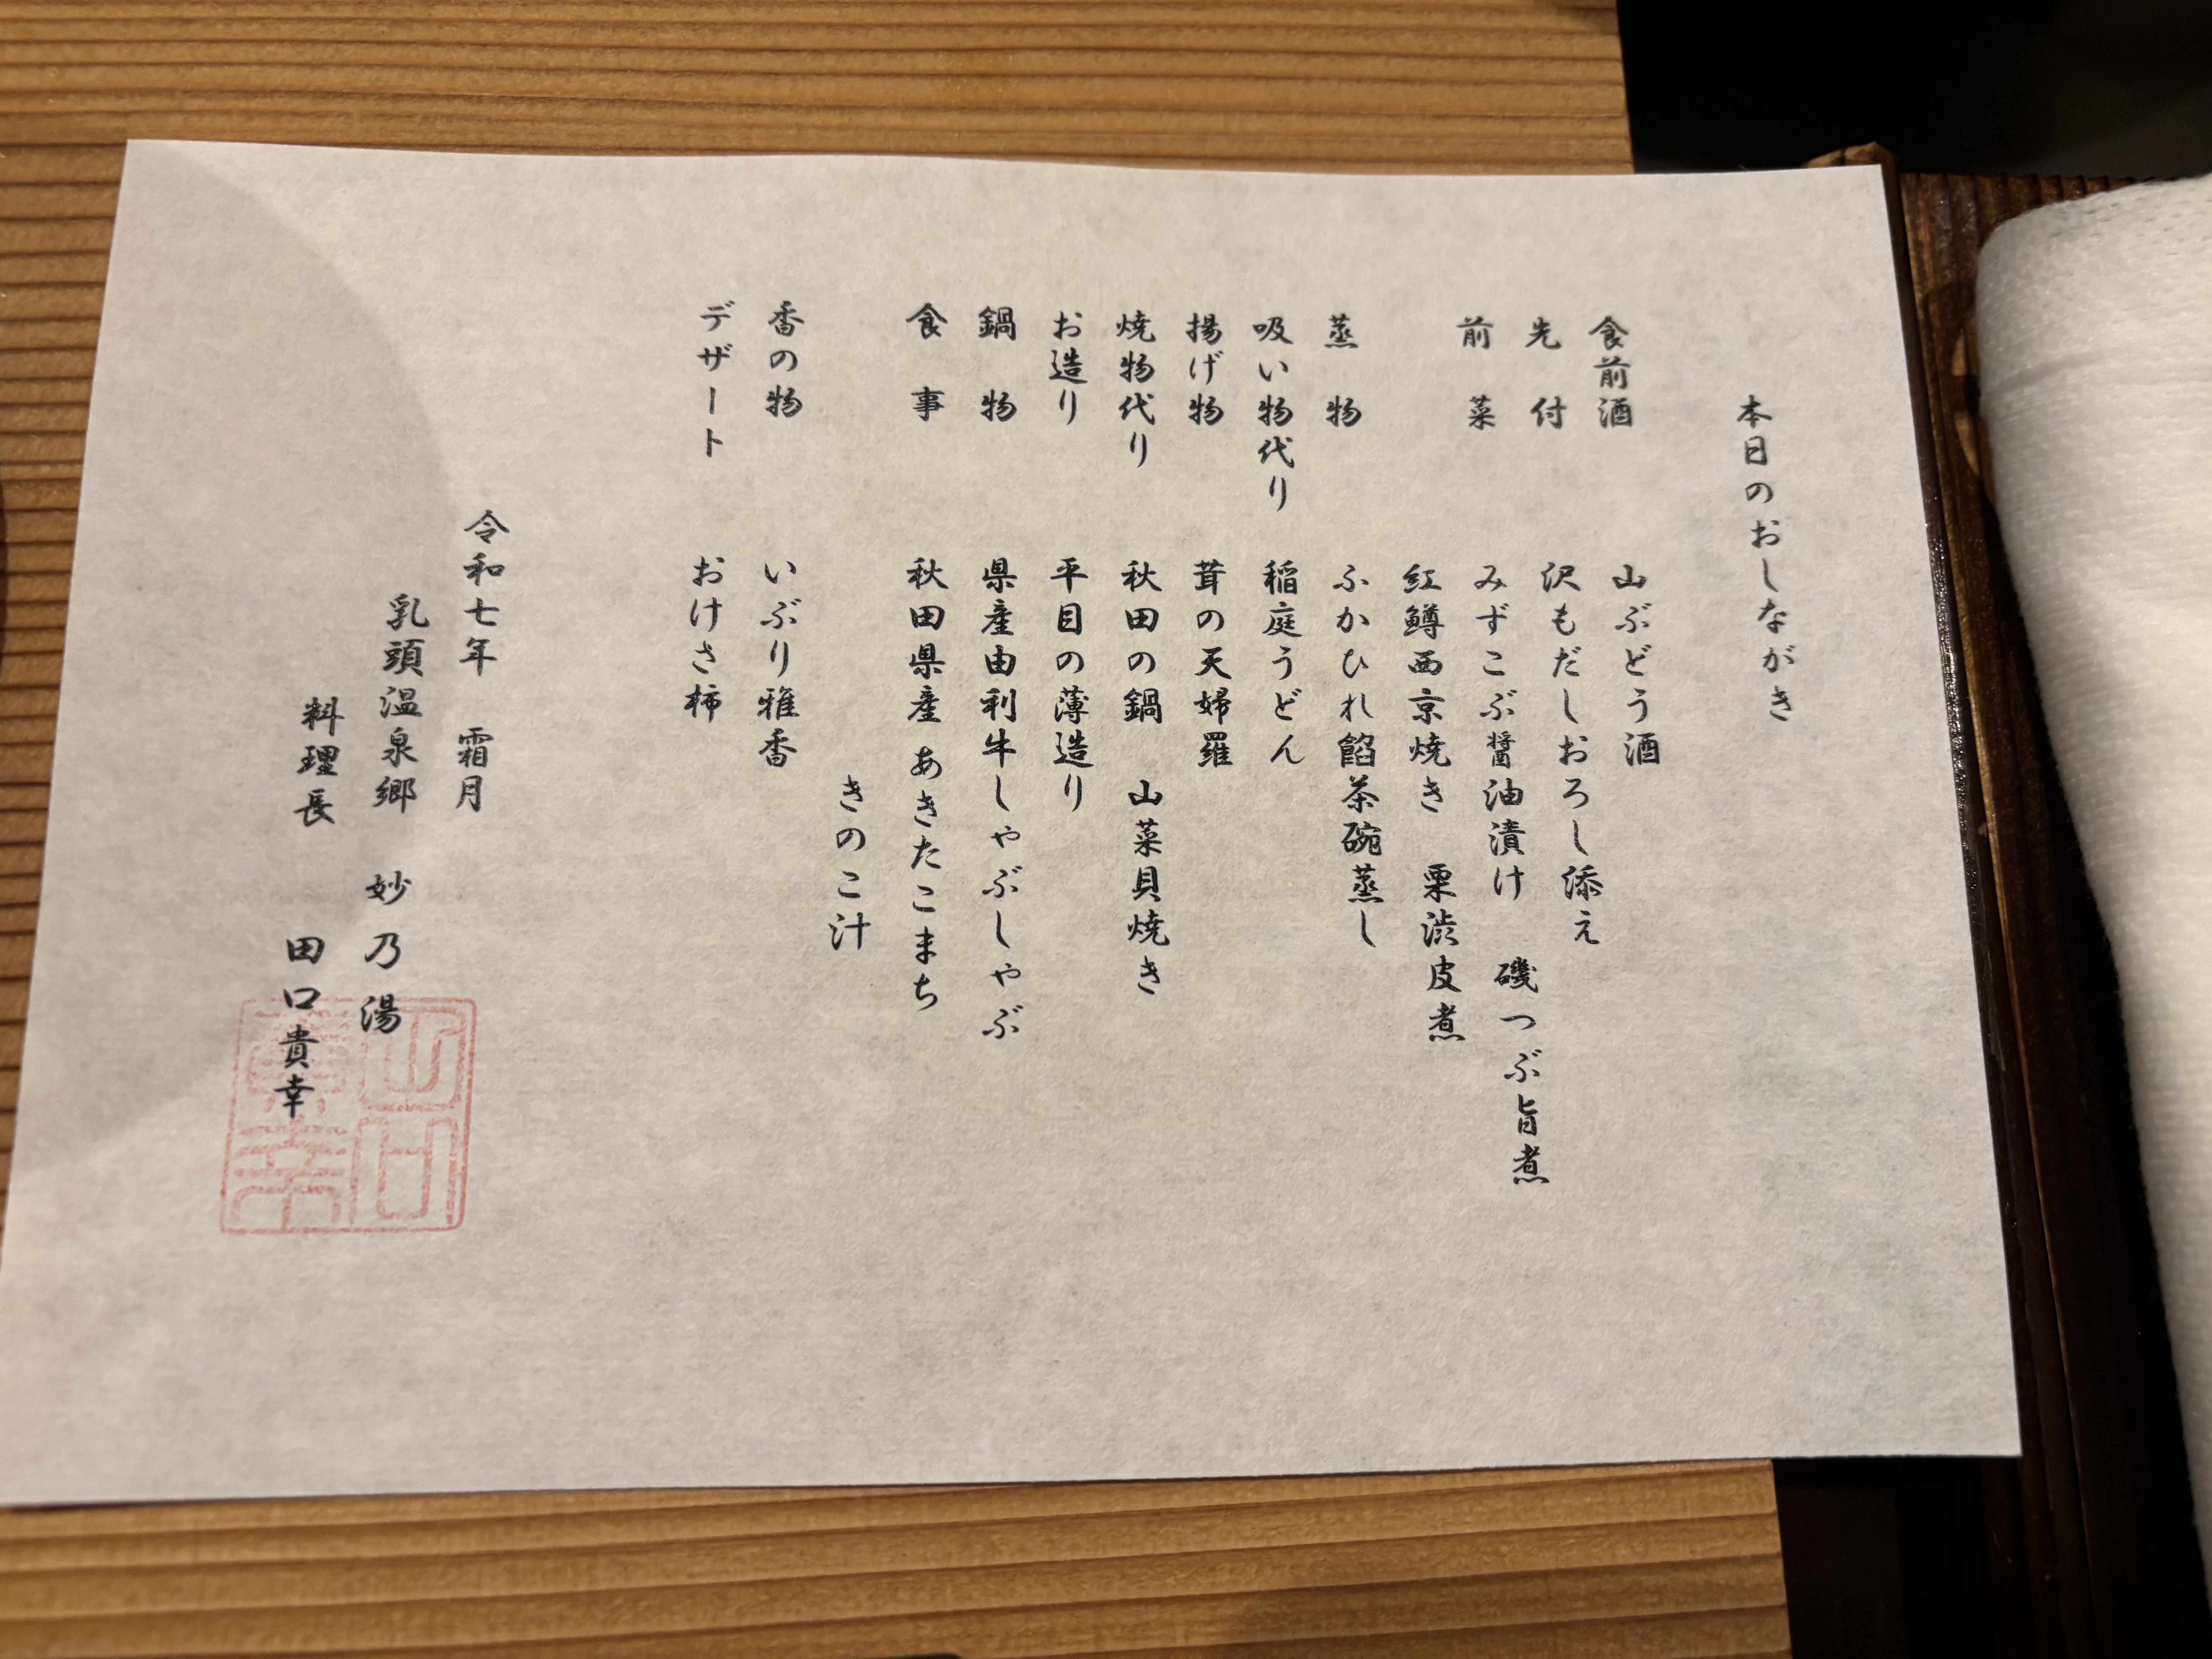 本日のおしながき
食前酒 山ぶどう酒
先付 沢もだしおろし添え
前菜 みずこぶ醤油漬け 磯つぶ旨煮
紅鱒西京焼き 栗渋皮煮
蒸物 ふかひれ餡茶碗蒸し
吸い物代り 稲庭うどん
揚げ物 茸の天婦羅
焼物代り 秋田の鍋 山菜貝焼き
お造り 平目の薄造り
鍋物 県産由利牛しゃぶしゃぶ
食事 秋田県産 あきたこまち
きのこ汁
香の物 いぶり雅香
デザート おけさ柿
令和七年 霜月
乳頭温泉郷 妙乃湯
料理長 田口貴幸